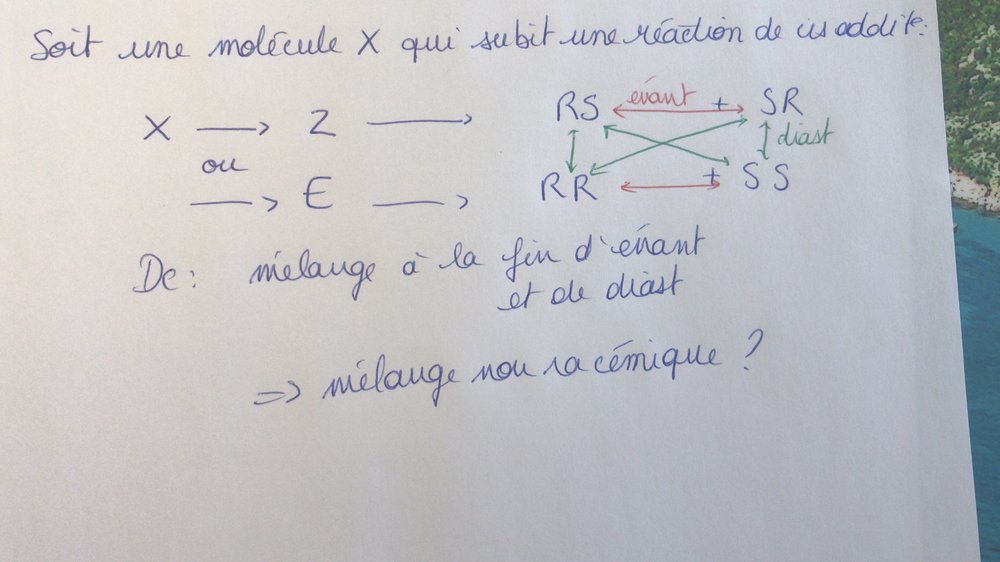 Soit une molécule X qui subit une réaction de cis addit°.
X → Z → RS ↔ énant + SR
ou ↕ ↕ diast
→ E → RR ↔ + SS
Dc : mélange à la fin d'énant
et de diast
⇒ mélange non racémique ?